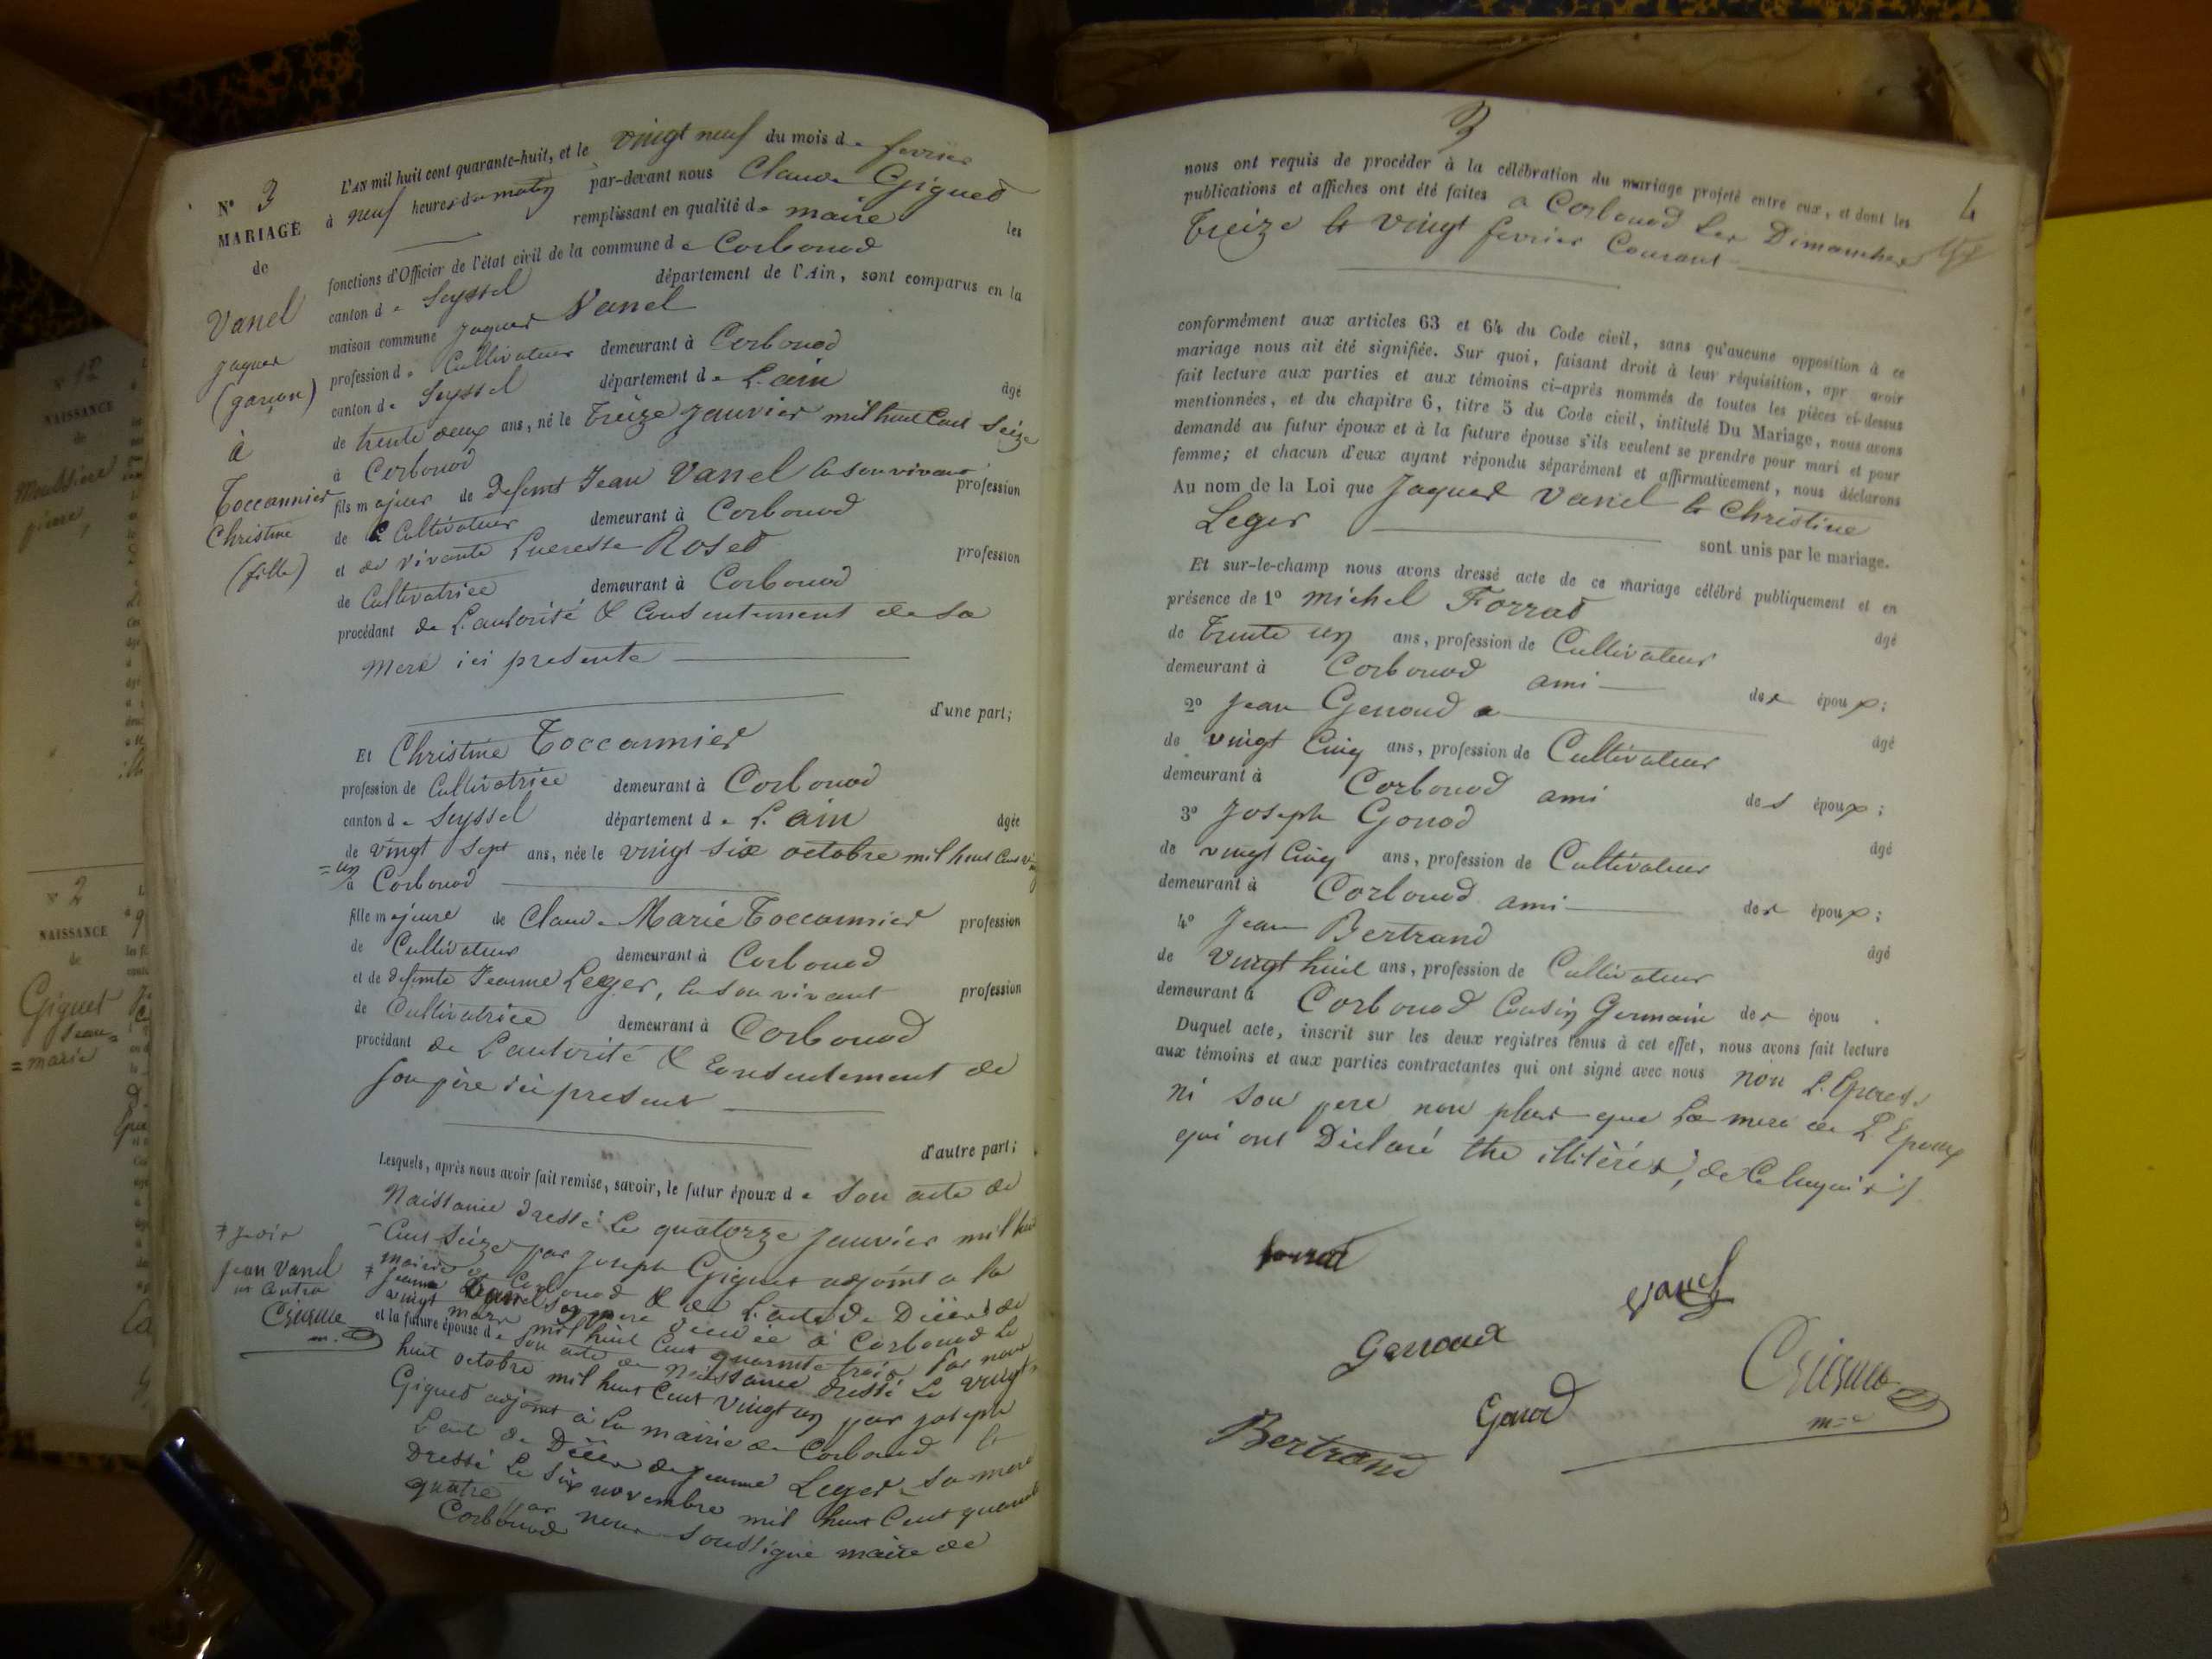 N° 3
MARIAGE
de
Vanel
Jaques
(garçon)
à
Toccannier
Christine
(fille)
L'AN mil huit cent quarante-huit, et le vingt neuf du mois de fevrier
à neuf heures du matin par-devant nous Claude Giguet
remplissant en qualité de maire les
fonctions d'Officier de l'état civil de la commune de Corbonod
canton de Seyssel département de l'Ain, sont comparus en la
maison commune Jaques Vanel
profession de Cultivateur demeurant à Corbonod
canton de Seyssel département de L'ain âgé
de trente deux ans, né le treize Janvier mil huit Cent Seize
à Corbonod
fils majeur de defunt Jean Vanel en son vivant profession
de Cultivateur demeurant à Corbonod
et de vivante Lucresse Roset profession
de Cultivatrice demeurant à Corbonod
procédant de L'autorité & Consentement de sa
mere ici presente
d'une part;
Et Christine Toccannier
profession de Cultivatrice demeurant à Corbonod
canton de Seyssel département de L'ain âgée
de vingt sept ans, née le vingt six octobre mil huit Cent vingt
=un
à Corbonod
fille majeure de Claude Marie Toccannier profession
de Cultivateur demeurant à Corbonod
et de defunte Jeanne Leger, en son vivant profession
de Cultivatrice demeurant à Corbonod
procédant de L'autorité & Consentement de
son père ici present
d'autre part;
Lesquels, après nous avoir fait remise, savoir, le futur époux de son acte de
Naissance dressé Le quatorze Janvier mil huit
Cent Seize par Joseph Giguet adjoint a la
mairie de Corbonod & de L'acte de Décès de
Jean Vanel son pere décédé à Corbonod le
vingt mars mil huit Cent quarante trois par nous
et la future épouse de son acte de Naissance dressé Le vingt
huit octobre mil huit Cent vingt un par Joseph
Giguet adjoint à La mairie de Corbonod &
L'acte de Décès de Jeanne Leger sa mere
Dressé Le Six novembre mil huit Cent quarante
quatre par nous soussigné maire de
Corbonod
Jean Vanel
3
4
nous ont requis de procéder à la célébration du mariage projeté entre eux, et dont les
publications et affiches ont été faites a Corbonod Les Dimanches
Treize & vingt fevrier Courant
conformément aux articles 63 et 64 du Code civil, sans qu'aucune opposition à ce
mariage nous ait été signifiée. Sur quoi, faisant droit à leur réquisition, apr avoir
fait lecture aux parties et aux témoins ci-après nommés de toutes les pièces ci-dessus
mentionnées, et du chapitre 6, titre 5 du Code civil, intitulé Du Mariage, nous avons
demandé au futur époux et à la future épouse s'ils veulent se prendre pour mari et pour
femme; et chacun d'eux ayant répondu séparément et affirmativement, nous déclarons
Au nom de la Loi que Jaques Vanel & Christine
Leger
sont unis par le mariage.
Et sur-le-champ nous avons dressé acte de ce mariage célébré publiquement et en
présence de 1° Michel Forrat âgé
de Trente un ans, profession de Cultivateur
demeurant à Corbonod ami des époux;
2° Jean Genoud âgé
de vingt Cinq ans, profession de Cultivateur
demeurant à Corbonod ami des époux;
3° Joseph Gonod âgé
de vingt Cinq ans, profession de Cultivateur
demeurant à Corbonod ami des époux;
4° Jean Bertrand âgé
de Vingt huit ans, profession de Cultivateur
demeurant à Corbonod Cousin Germain des épou .
Duquel acte, inscrit sur les deux registres tenus à cet effet, nous avons fait lecture
aux témoins et aux parties contractantes qui ont signé avec nous non L'Epouse
ni son pere non plus que La mere de L'Epoux
qui ont Déclaré être illitérés, de Ce Requis
forrat
Vanel
Genoud
Gonod
Bertrand
N° 12
NAISSANCE
de
N° 2
NAISSANCE
de
Giguet
Jean=
=marie